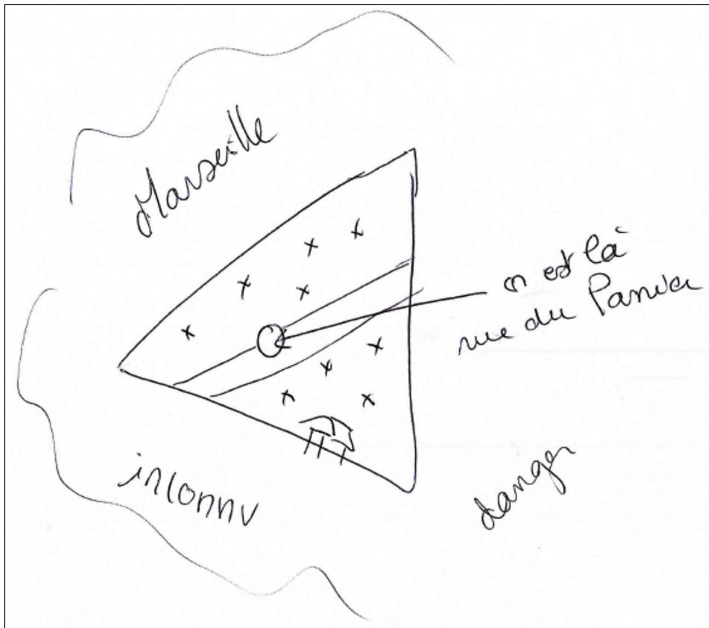 Marseille
on est là
rue du Panier
inconnu
danger